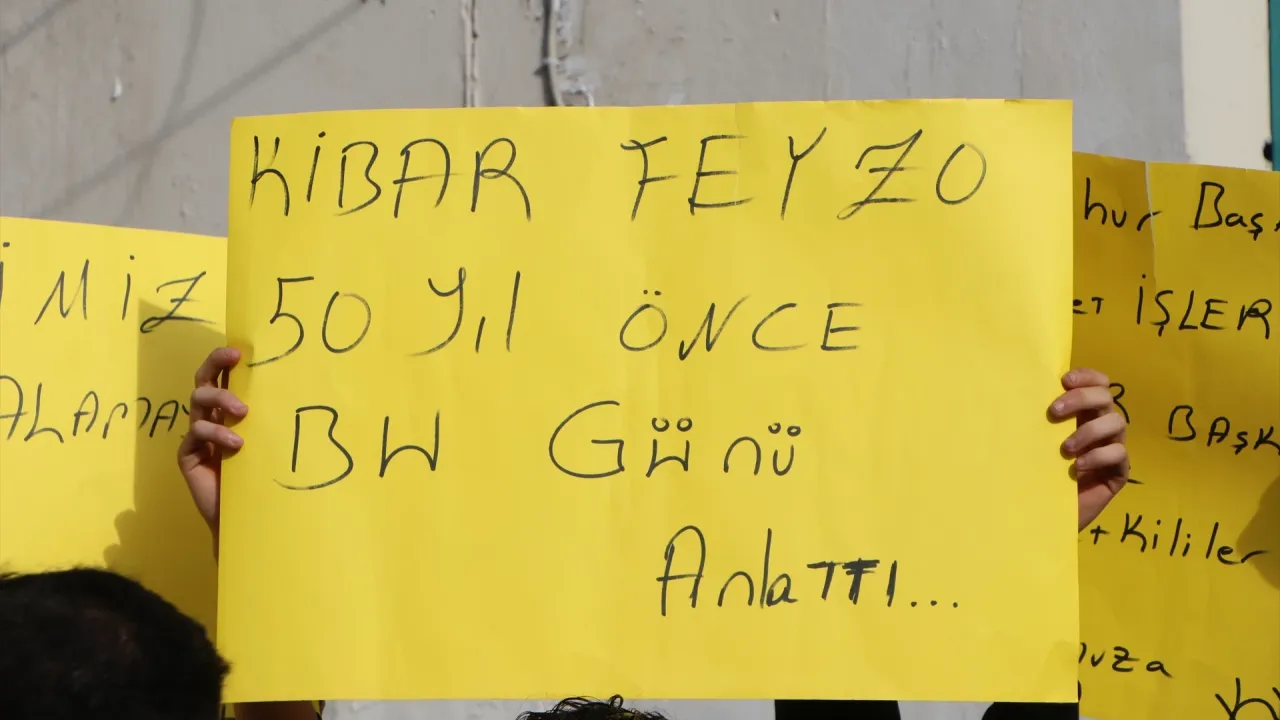 KİBAR FEYZO
50 Yıl ÖNCE
BU Günü
AnlaTTI...
İMİZ
ALAMAY
hur Baş
ET İŞLER
R BAŞK
tKililer
uza